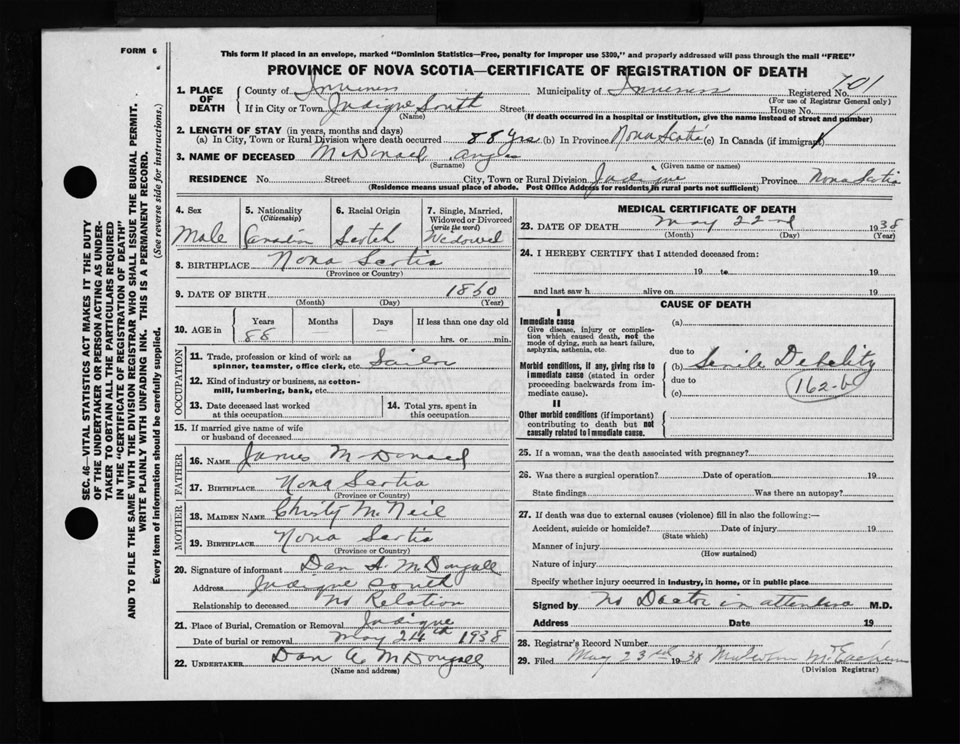 FORM 6
This form if placed in an envelope, marked "Dominion Statistics—Free, penalty for improper use $300," and properly addressed will pass through the mail "FREE"
PROVINCE OF NOVA SCOTIA—CERTIFICATE OF REGISTRATION OF DEATH
1. PLACE OF DEATH County of Inverness Municipality of Inverness Registered No. 701
(For use of Registrar General only)
If in City or Town Judique South Street House No.
(Name) (If death occurred in a hospital or institution, give the name instead of street and number)
2. LENGTH OF STAY (in years, months and days)
(a) In City, Town or Rural Division where death occurred 88 yrs (b) In Province Nova Scotia (c) In Canada (if immigrant)
3. NAME OF DECEASED McDonald Angus
(Surname) (Given name or names)
RESIDENCE No. Street City, Town or Rural Division Judique Province Nova Scotia
(Residence means usual place of abode. Post Office Address for residents in rural parts not sufficient)
4. Sex Male
5. Nationality (Citizenship) Canadian
6. Racial Origin Scotch
7. Single, Married, Widowed or Divorced (write the word) Widowed
8. BIRTHPLACE Nova Scotia
(Province or Country)
9. DATE OF BIRTH 1850
(Month) (Day) (Year)
10. AGE in Years Months Days If less than one day old
88 hrs. or min.
OCCUPATION
11. Trade, profession or kind of work as spinner, teamster, office clerk, etc. Sailor
12. Kind of industry or business, as cotton-mill, lumbering, bank, etc.
13. Date deceased last worked at this occupation
14. Total yrs. spent in this occupation
15. If married give name of wife or husband of deceased
FATHER
16. NAME James McDonald
17. BIRTHPLACE Nova Scotia
(Province or Country)
MOTHER
18. MAIDEN NAME Christy McNeil
19. BIRTHPLACE Nova Scotia
(Province or Country)
20. Signature of informant Dan A. McDougall
Address Judique South
Relationship to deceased No Relation
21. Place of Burial, Cremation or Removal Judique
Date of burial or removal May 24th 1938
22. UNDERTAKER Dan A McDougall
(Name and address)
MEDICAL CERTIFICATE OF DEATH
23. DATE OF DEATH May 22nd 1938
(Month) (Day) (Year)
24. I HEREBY CERTIFY that I attended deceased from:
19 to 19
and last saw h alive on 19
CAUSE OF DEATH
I
Immediate cause
Give disease, injury or complication which caused death, not the mode of dying, such as heart failure, asphyxia, asthenia, etc.
(a)
due to
Morbid conditions, if any, giving rise to immediate cause (stated in order proceeding backwards from immediate cause).
(b) Senile Debility
due to
(c) 162-b
II
Other morbid conditions (if important) contributing to death but not causally related to immediate cause.
25. If a woman, was the death associated with pregnancy?
26. Was there a surgical operation? Date of operation 19
State findings Was there an autopsy?
27. If death was due to external causes (violence) fill in also the following:—
Accident, suicide or homicide? Date of injury 19
(State which)
Manner of injury
(How sustained)
Nature of injury
Specify whether injury occurred in industry, in home, or in public place
Signed by No Doctor in attendance M.D.
Address Date 19
28. Registrar's Record Number
29. Filed May 23rd 1938 Malcolm McEachern
(Division Registrar)
SEC. 46—VITAL STATISTICS ACT MAKES IT THE DUTY
OF THE UNDERTAKER OR PERSON ACTING AS UNDER-
TAKER TO OBTAIN ALL THE PARTICULARS REQUIRED
IN THE "CERTIFICATE OF REGISTRATION OF DEATH"
AND TO FILE THE SAME WITH THE DIVISION REGISTRAR WHO SHALL ISSUE THE BURIAL PERMIT.
WRITE PLAINLY WITH UNFADING INK. THIS IS A PERMANENT RECORD.
Every item of information should be carefully supplied. (See reverse side for instructions.)